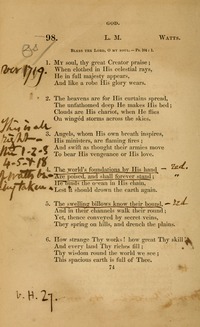 GOD.
98. L. M. WATTS.
BLESS THE LORD, O MY SOUL.—Ps. 104: 1.
1. My soul, thy great Creator praise;
When clothed in his celestial rays,
He in full majesty appears,
And like a robe his glory wears.
2. The heavens are for his curtains spread,
The unfathomed deep He makes His bed;
Clouds are His chariot, when He flies
On winged storms across the skies.
3. Angels, whom His own breath inspires,
His ministers, are flaming fires;
And swift as thought their armies move
To bear His vengeance or His love.
4. The world's foundations by His hand
Are poised, and shall forever stand;
He binds the ocean in His chain,
Lest it should drown the earth again.
5. The swelling billows know their bound,
And in their channels walk their round;
Yet, thence conveyed by secret veins,
They spring on hills, and drench the plains.
6. How strange Thy works! how great Thy skill
And every land Thy riches fill:
Thy wisdom round the world we see;
This spacious earth is full of Thee.
74
This is all
1-2-3
4-5-
18
v. H. 27.